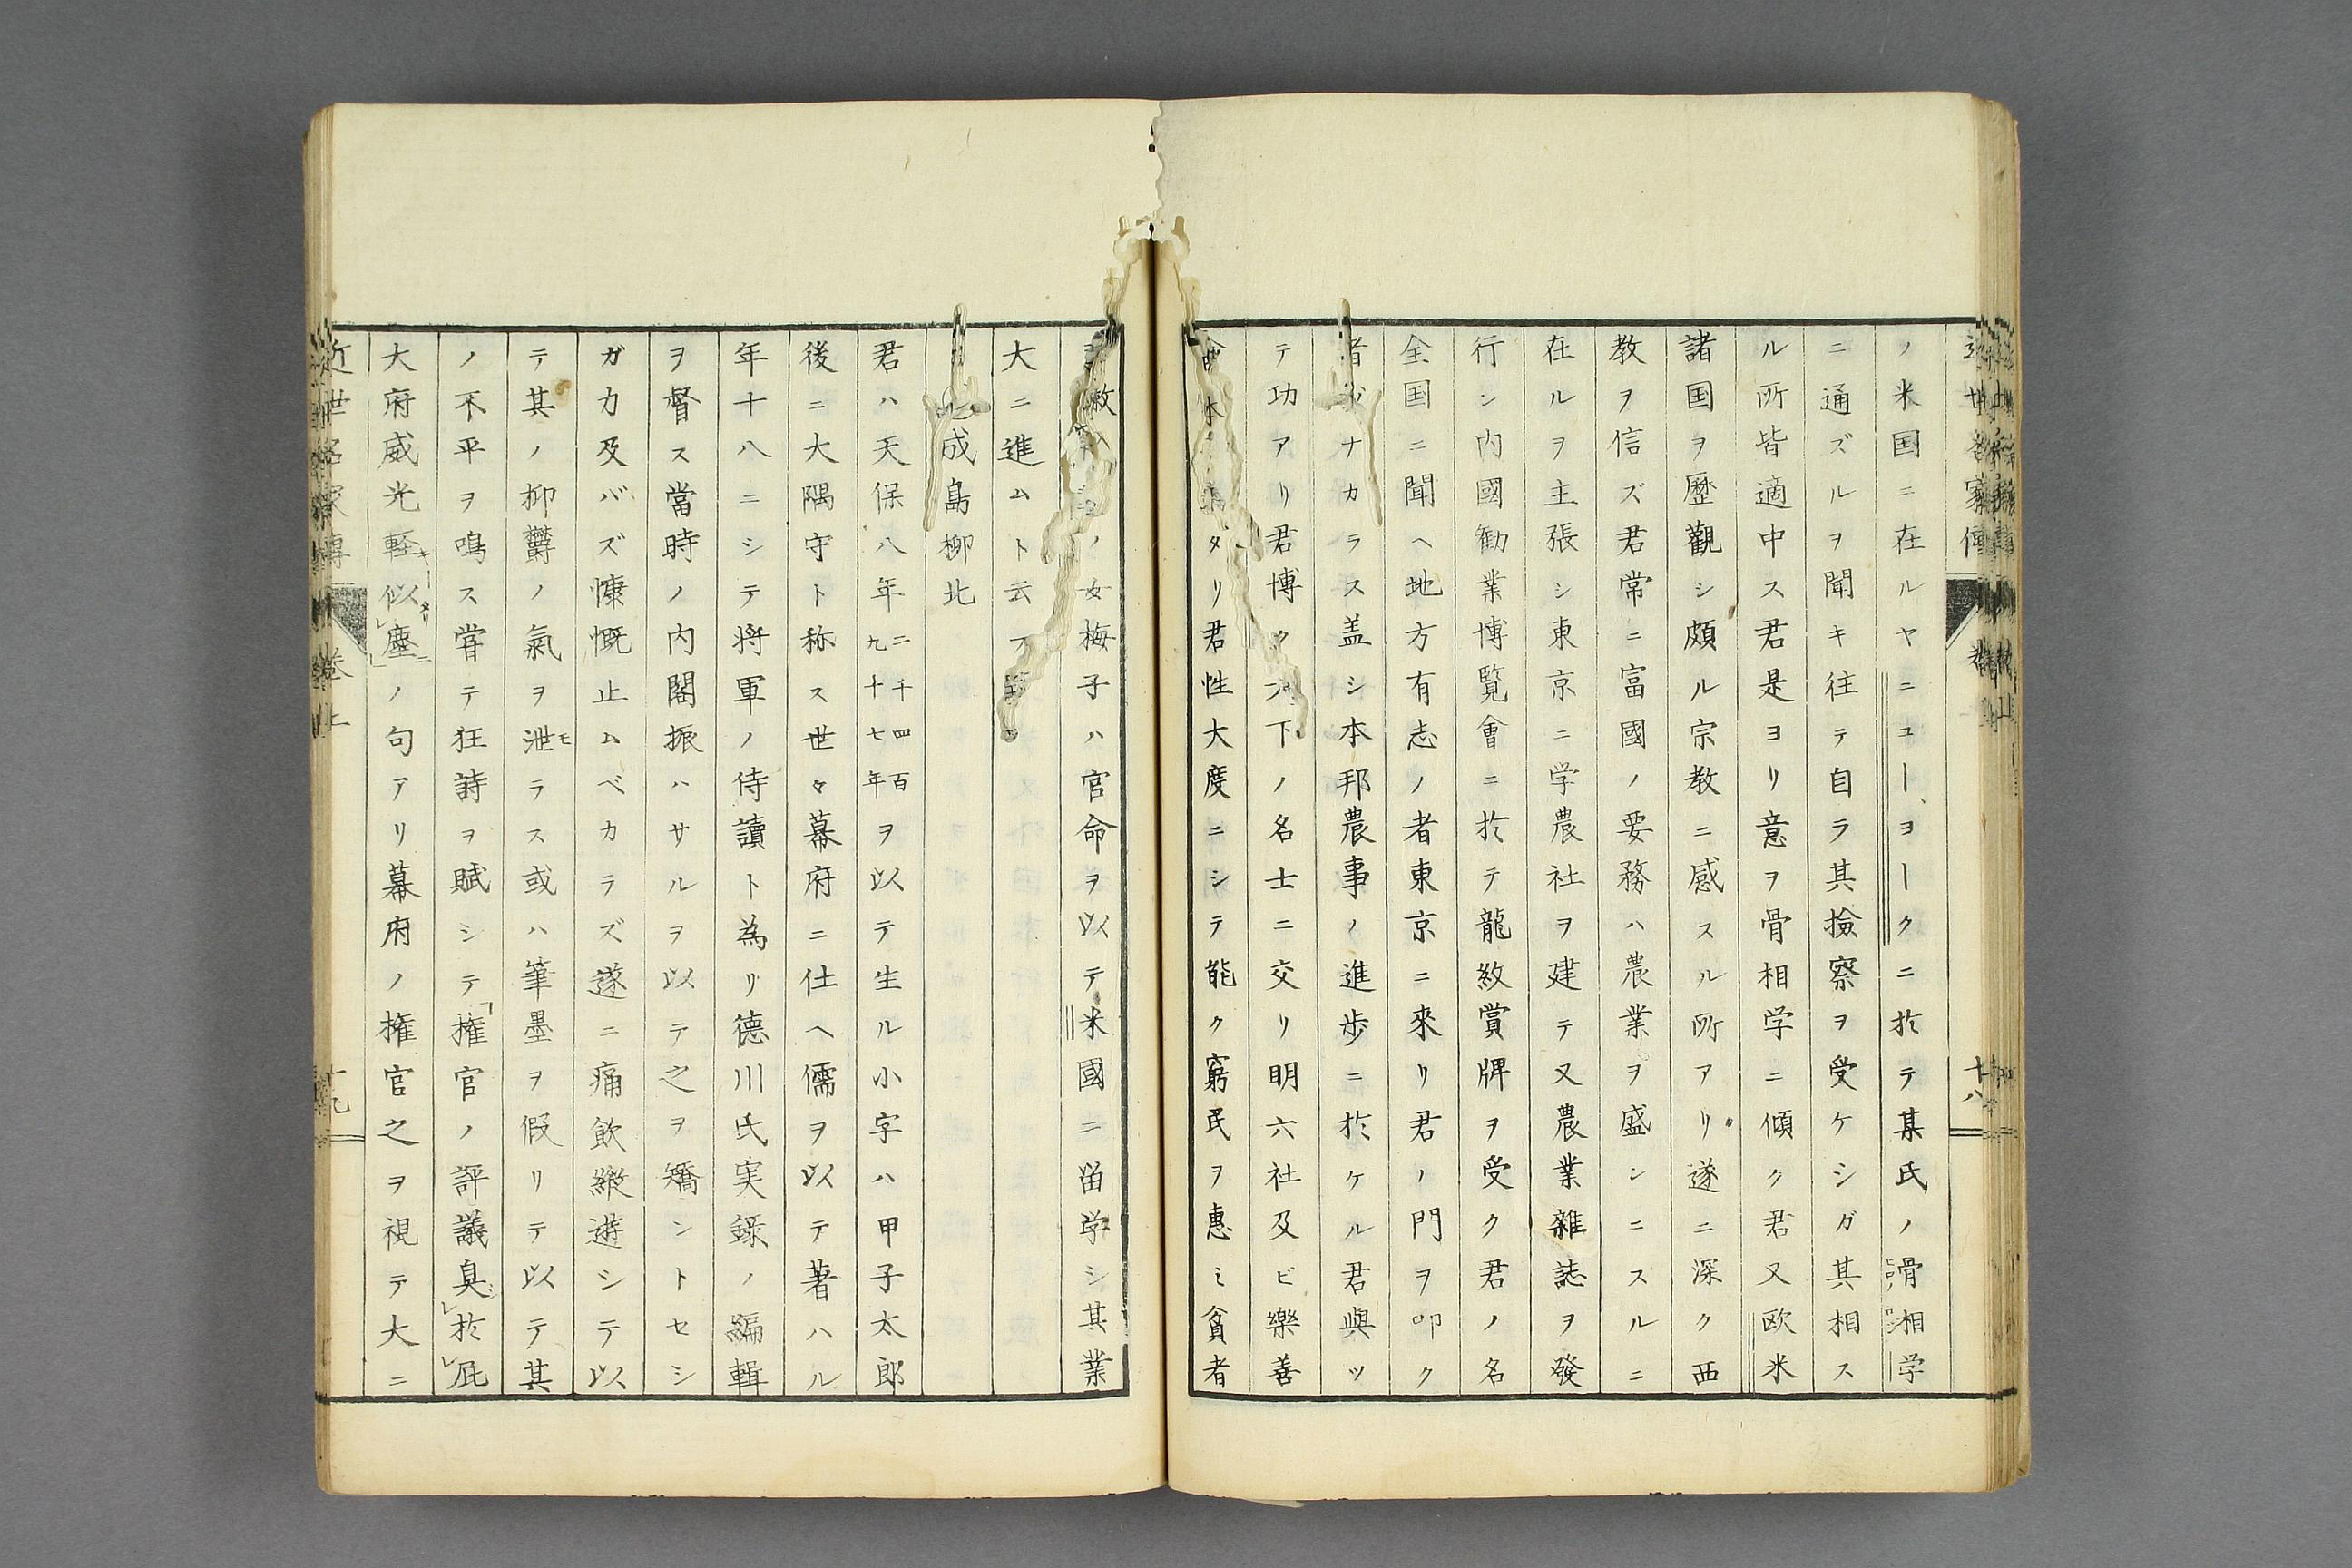 ノ米国ニ在ルヤニユーヨークニ於テ某氏ノ骨相学
ニ通ズルヲ聞キ往テ自ラ其撿察ヲ受ケシガ其相ス
ル所皆適中ス君是ヨリ意ヲ骨相学ニ傾ク君又欧米
諸国ヲ歴觀シ頗ル宗教ニ感スル所アリ遂ニ深ク西
教ヲ信ズ君常ニ富國ノ要務ハ農業ヲ盛ンニスルニ
在ルヲ主張シ東京ニ学農社ヲ建テ又農業雑誌ヲ發
行シ内國勧業博覧會ニ於テ龍紋賞牌ヲ受ク君ノ名
全国ニ聞ヘ地方有志ノ者東京ニ來リ君ノ門ヲ叩ク
者ナカラス盖シ本邦農事ノ進歩ニ於ケル君與ツ
テ功アリ君博ク下ノ名士ニ交リ明六社及ビ樂善
タリ君性大度ニシテ能ク窮民ヲ惠ミ貧者
ノ女梅子ハ官命ヲ以テ米國ニ留学シ其業
大ニ進ムト云
成島柳北
君ハ天保八年二千四百九十七年ヲ以テ生ル小字ハ甲子太郎
後ニ大隅守ト称ス世々幕府ニ仕ヘ儒ヲ以テ著ハル
年十八ニシテ将軍ノ侍讀ト為リ德川氏実録ノ編輯
ヲ督ス當時ノ内閣振ハサルヲ以テ之ヲ矯ントセシ
ガカ及バズ慷慨止ムベカラズ遂ニ痛飲縱遊シテ以
テ其ノ抑欝ノ氣ヲ泄モラス或ハ筆墨ヲ假リテ以テ其
ノ不平ヲ鳴ス甞テ狂詩ヲ賦シテ「権官ノ評議臭レ於レ屁
大府威光軽似レ塵」ノ句アリ幕府ノ権官之ヲ視テ大ニ
近世名家傳 巻上 十九
近世名家傳 十八